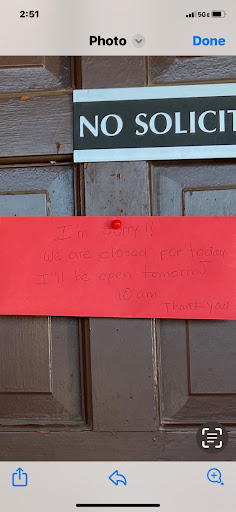 2:51
5G E
Photo
Done
NO SOLICIT
I'm Sorry !!
We are closed for today
I'll be open tomorrow
10 am
Thank you